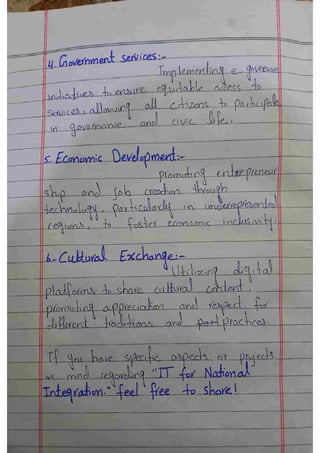 4. Government services:-
Implementing e-governance
initiatives to ensure equitable access to
services, allowing all citizens to participate
in governance and civic life.
5. Economic Development:-
promoting entrepreneur
ship and job creation through
technology, particularly in underrepresented
regions, to foster economic inclusivity.
6- Cultural Exchange:-
Utilizing digital
platforms to share cultural content,
promoting appreciation and respect for
different traditions and practices.
If you have specific aspects or projects
in mind regarding "IT for National
Integration." feel free to share!